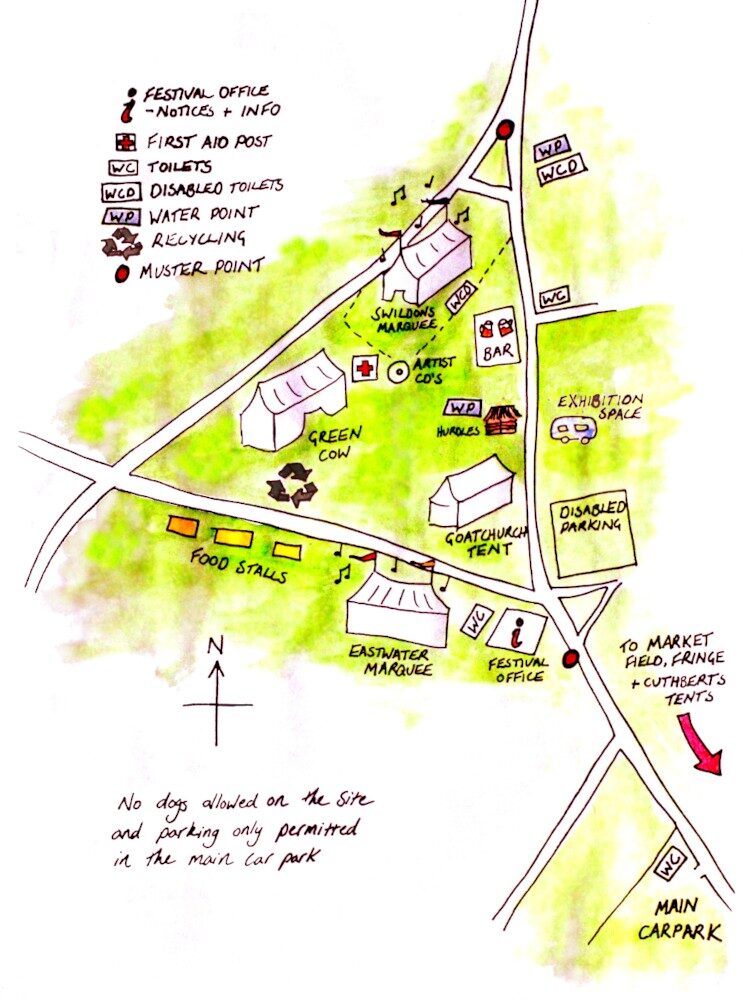 FESTIVAL OFFICE
- NOTICES + INFO
FIRST AID POST
WC TOILETS
WCD DISABLED TOILETS
WP WATER POINT
RECYCLING
MUSTER POINT
WP
WCD
SWILDONS
MARQUEE
WCD
WC
BAR
ARTIST
CD'S
GREEN
COW
WP
HURDLES
EXHIBITION
SPACE
GOATCHURCH
TENT
DISABLED
PARKING
FOOD STALLS
EASTWATER
MARQUEE
WC
FESTIVAL
OFFICE
TO MARKET
FIELD, FRINGE
+ CUTHBERTS
TENTS
N
No dogs allowed on the site
and parking only permitted
in the main car park
WC
MAIN
CARPARK